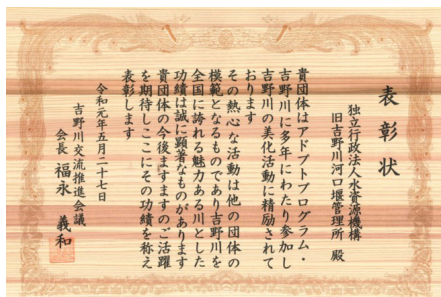 表彰状
独立行政法人水資源機構
旧吉野川河口堰管理所 殿
貴団体はアドプトプログラム・
吉野川に多年にわたり参加し
吉野川の美化活動に精励されて
おります
その熱心な活動は他の団体の
模範となるものであり吉野川を
全国に誇れる魅力ある川とした
功績は誠に顕著なものがあります
貴団体の今後ますますのご活躍
を期待しここにその功績を称え
表彰します
令和元年五月二十七日
吉野川交流推進会議
会長 福永 義和